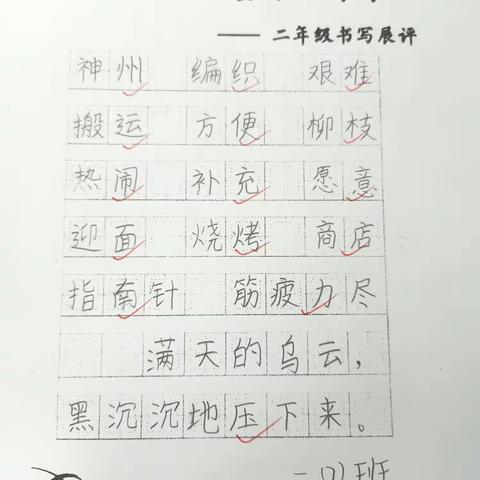 —— 二年级书写展评
神州 编织 艰难
搬运 方便 柳枝
热闹 补充 愿意
迎面 烧烤 商店
指南针 筋疲力尽
满天的乌云，
黑沉沉地压下来。
班